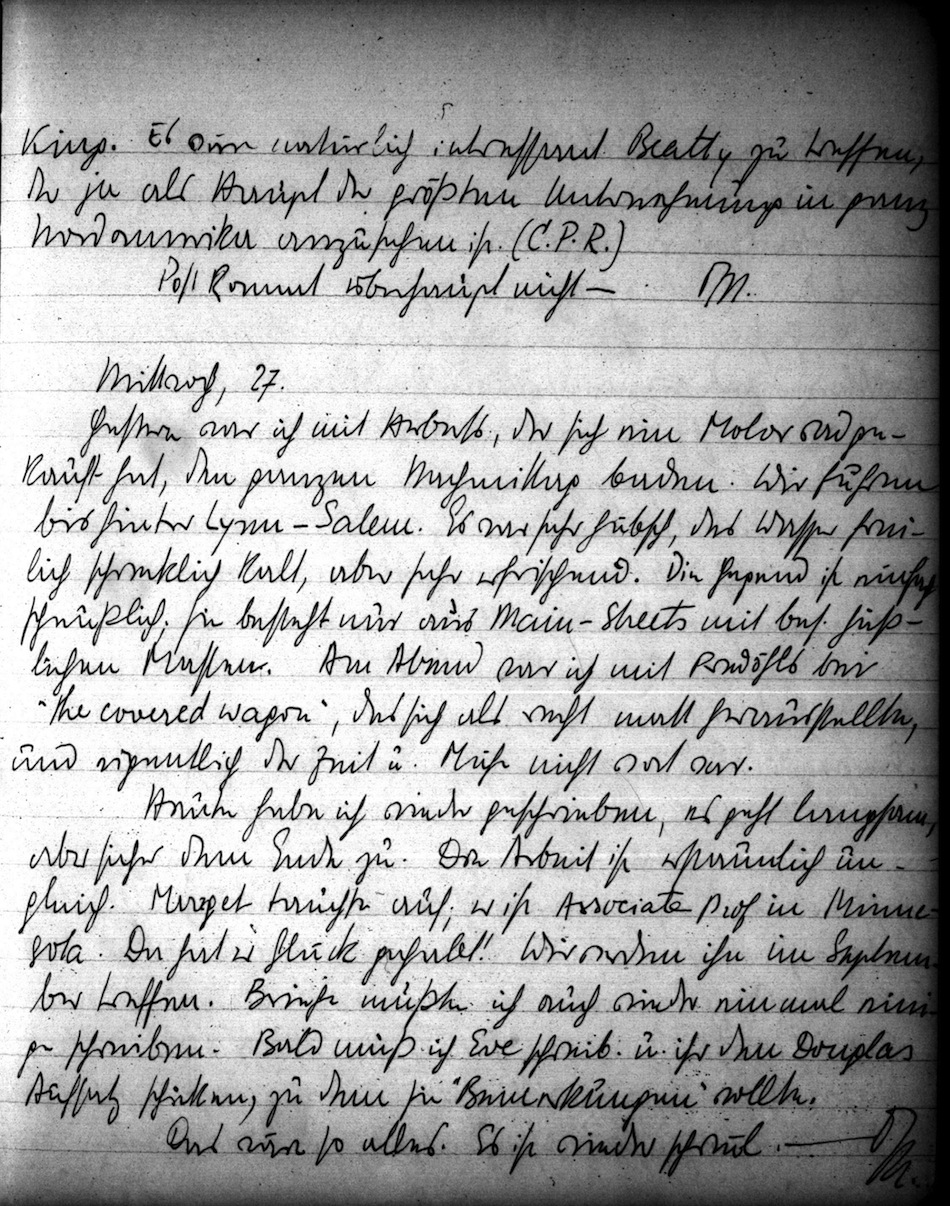 King. Es wäre natürlich interessant Beatty zu treffen,
der ja als Haupt der größten Unternehmung in ganz
Nordamerika anzusehen ist. (C.P.R.)
Post kommt überhaupt nicht —
Mittwoch, 27.
Gestern war ich mit Arbuss, der sich ein Motorrad ge-
kauft hat, den ganzen Nachmittag baden. Wir fuhren
bis hinter Lynn-Salem. Es war sehr hübsch, das Wasser frei-
lich schrecklich kalt, aber sehr erfrischend. Die Gegend ist einfach
scheußlich; sie besteht nur aus Main-Streets mit bes. häß-
lichen Massen. Am Abend war ich mit bei
"The covered wagon", das sich als recht matt herausstellte,
und eigentlich der Zeit u. Mühe nicht wert war.
Heute habe ich wieder geschrieben, es geht langsam,
aber sicher dem Ende zu. Die Arbeit ist erstaunlich un-
gleich. Marget tauchte auf; er ist Associate Prof in Minne-
sota. Da hat er Glück gehabt! Wir werden ihn im Septem-
ber treffen. Briefe müßte ich auch wieder einmal eini-
ge schreiben. Bald muß ich Eve schreib. u. ihr den Douglas
Aufsatz schicken, zu dem sie "Bemerkungen" wollte.
Das wäre so alles. Es ist wieder schwül. —